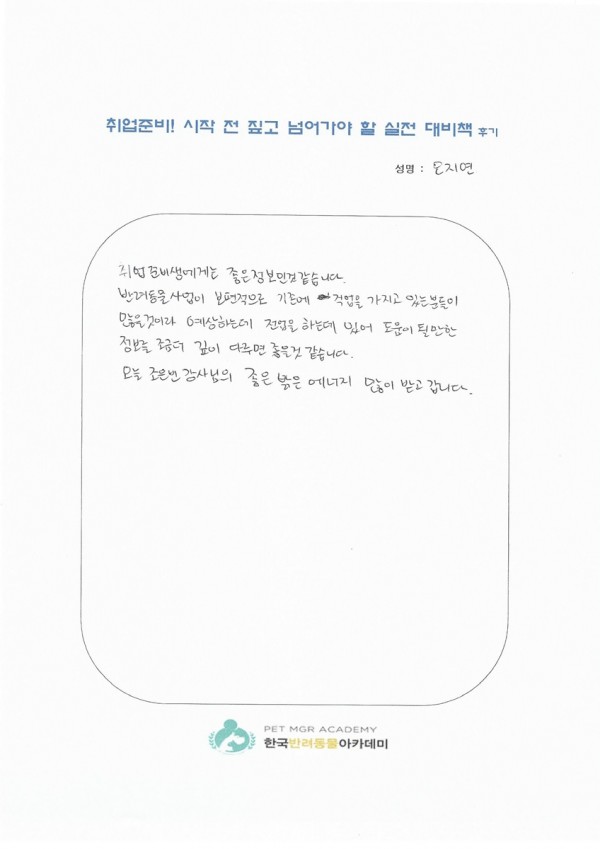 취업준비! 시작 전 짚고 넘어가야 할 실전 대비책 후기
성명 : 도지연
취업준비생에게는 좋은정보인것같습니다.
반려동물사업이 보편적으로 기존에 직업을 가지고 있는분들이
많을것이라 예상하는데 전업을 하는데 있어 도움이 될만한
정보를 조금더 깊이 다루면 좋을것 같습니다.
오늘 조은빈 강사님의 좋은 밝은 에너지 많이 받고 갑니다.
PET MGR ACADEMY
한국반려동물아카데미